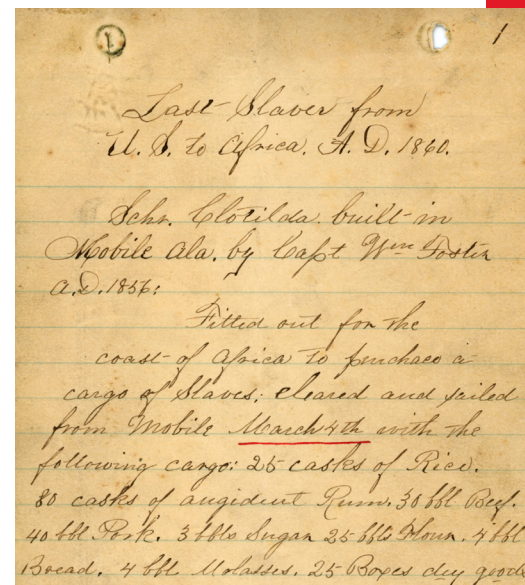 1
1
Last Slaver from
U. S. to Africa. A. D. 1860.
Schr. Clotilda built in
Mobile Ala. by Capt Wm Foster
A.D. 1856:
Fitted out for the
coast of Africa to purchase a
cargo of Slaves; cleared and sailed
from Mobile March 4th with the
following cargo: 25 casks of Rice.
80 casks of Rum. 30 bbl Beef.
40 bbl Pork. 3 bbls Sugar 25 bbls Flour. 4 bbl
Bread. 4 bbl Molasses. 25 Boxes dry good